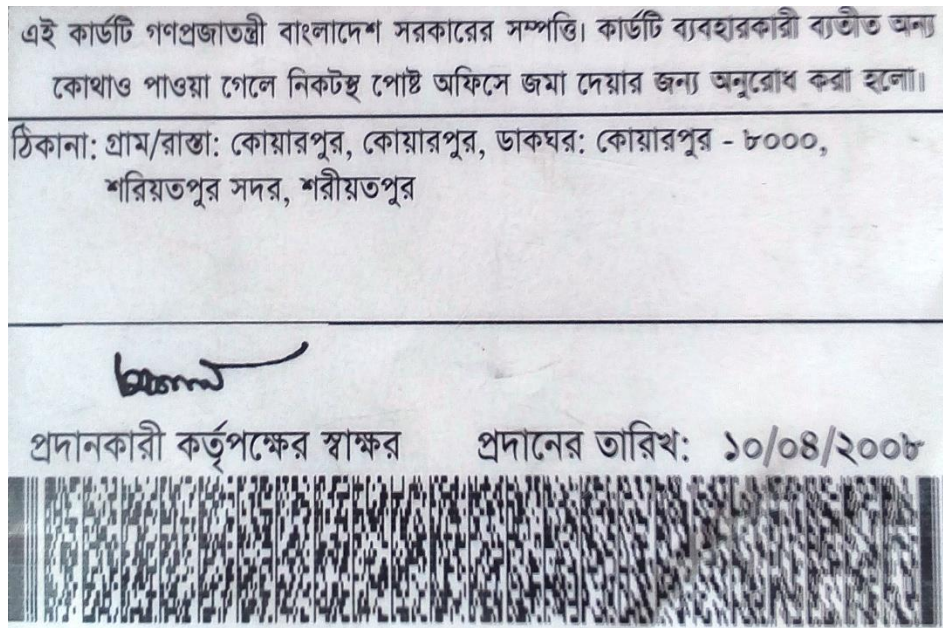 এই কার্ডটি গণপ্রজাতন্ত্রী বাংলাদেশ সরকারের সম্পত্তি। কার্ডটি ব্যবহারকারী ব্যতীত অন্য
কোথাও পাওয়া গেলে নিকটস্থ পোষ্ট অফিসে জমা দেয়ার জন্য অনুরোধ করা হলো।
ঠিকানা: গ্রাম/রাস্তা: কোয়ারপুর, কোয়ারপুর, ডাকঘর: কোয়ারপুর - ৮০০০,
শরিয়তপুর সদর, শরীয়তপুর
প্রদানকারী কর্তৃপক্ষের স্বাক্ষর প্রদানের তারিখ: ১০/০৪/২০০৮